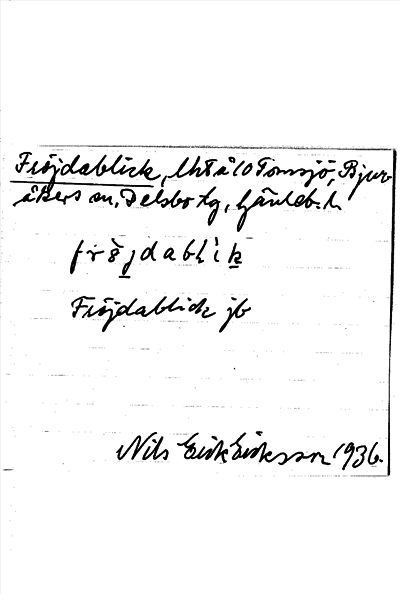 Fröjdablick, lht å 10 Tomsjö, Bjur-
åkers sn, Delsbo tg, Gävleb. l.
frö̀jdablìk
Fröjdablick jb
Nils Erik Eriksson 1936.